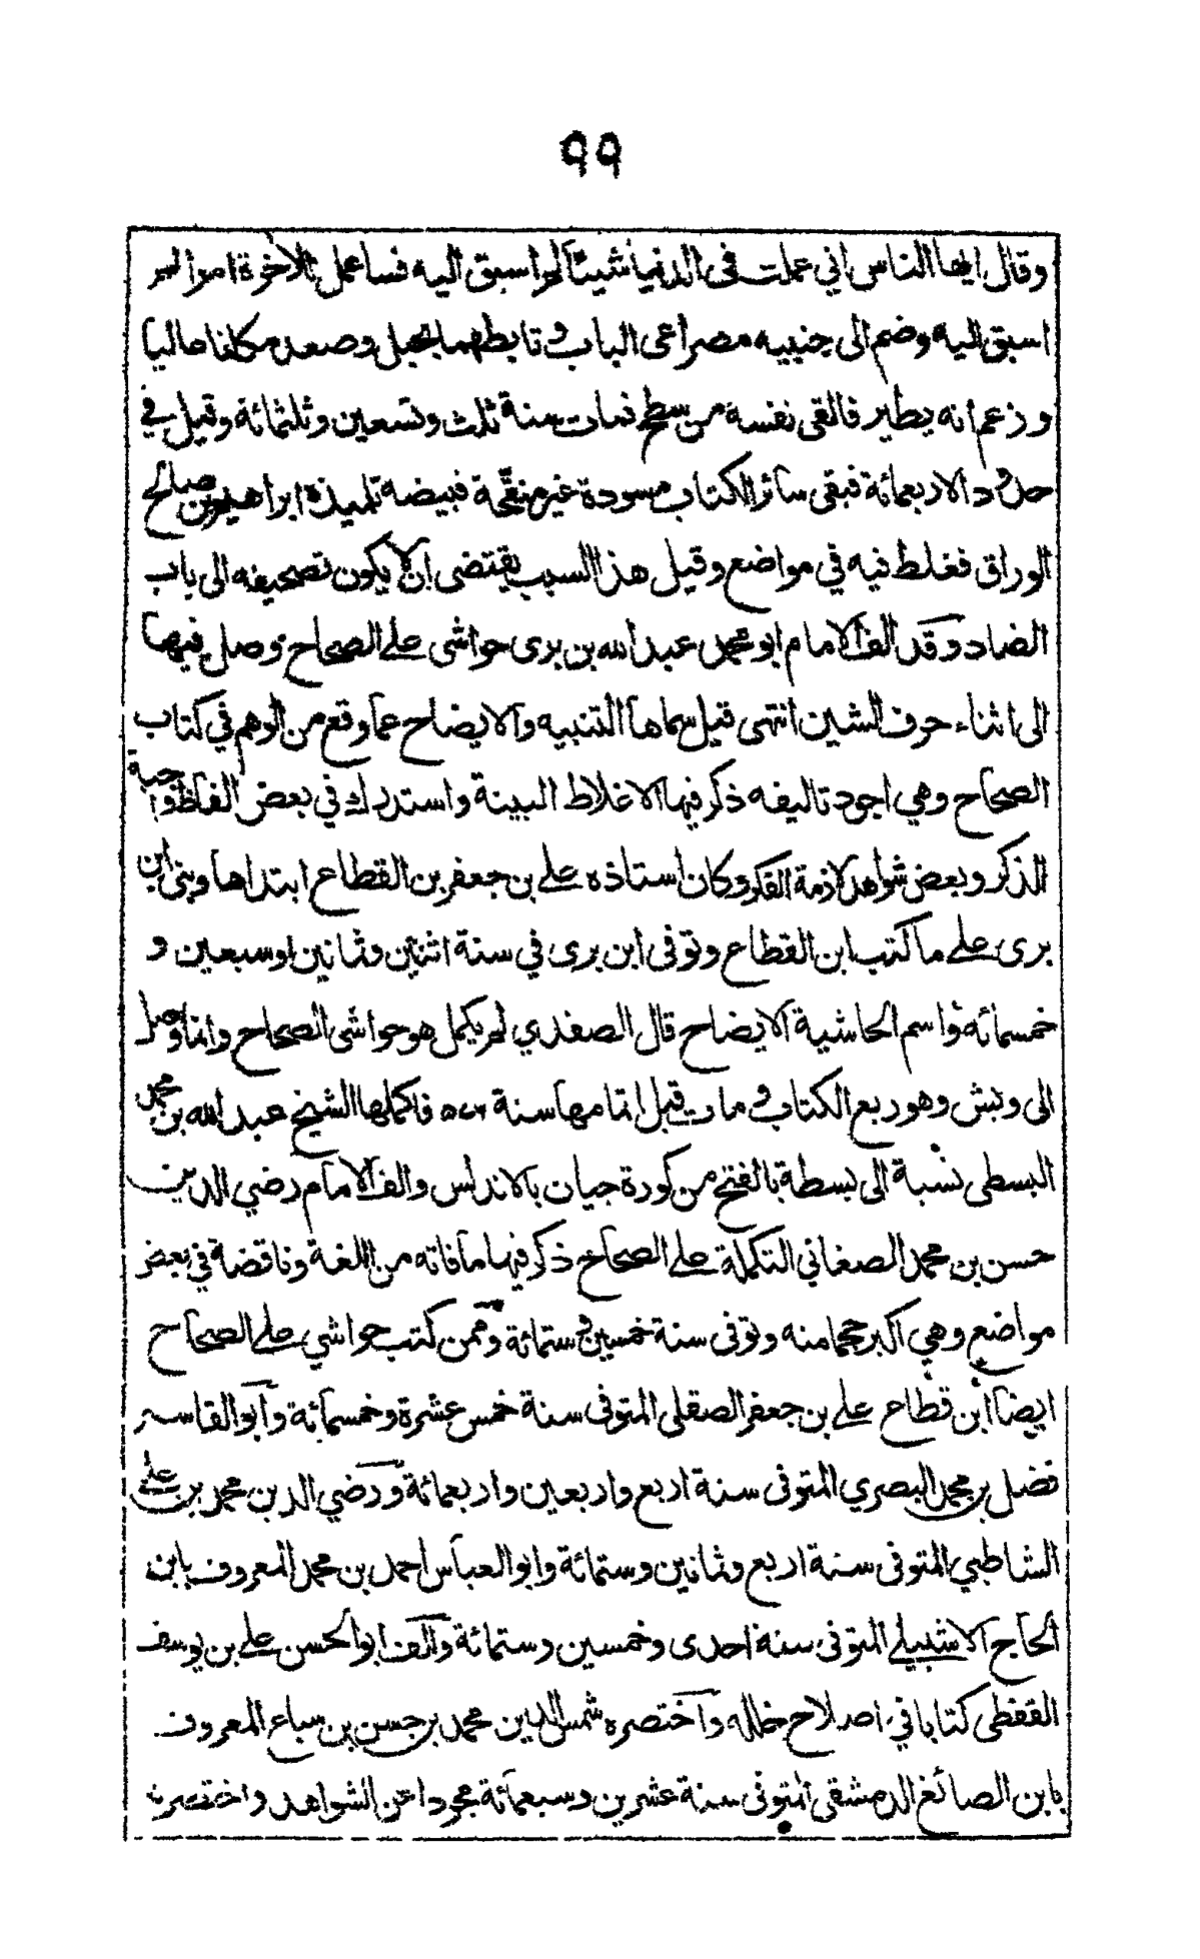 ٩٩
وقال ايها الناس اني عملت في الدنيا شيئا لم اسبق اليه فساعمل للآخرة امرا لم
اسبق اليه وضم الى جنبيه مصراعى الباب وتابطهما بحبل وصعد مكانا عاليا
وزعم انه يطير فالقى نفسه من سطح فمات سنة ثلث وتسعين وثلثمائة وقيل في
حدود الاربعمائة فبقى سائر الكتاب مسودة غير منقحة فبيضه تلميذه ابراهيم بن صالح
الوراق فغلط فيه في مواضع وقيل هذا السبب يقتضى ان لا يكون تصحيفه الى باب
الضاد وقد الف الامام ابو محمد عبد الله بن برى حواشى على الصحاح وصل فيها
الى اثناء حرف الشين انتهى قيل سماها التنبيه والايضاح عما وقع من الوهم في كتاب
الصحاح وهي اجود تاليفه ذكر فيها الاغلاط البينة واستدرك في بعض الفاظ واجبة
الذكر وبعض شواهد لازمة الفكر وكان استاذه على بن جعفر بن القطاع ابتداها وبنى ابن
برى على ما كتب ابن القطاع وتوفى ابن برى في سنة اثنتين وثمانين او سبعين و
خمسمائة واسم الحاشية الايضاح قال الصفدي لم يكمل هو حواشى الصحاح وانما وصل
الى وبش وهو ربع الكتاب و مات قبل اتمامها سنة ٥٧٦ فاكملها الشيخ عبد الله بن محمد
البسطى نسبة الى بسطة بالفتح من كورة جيان بالاندلس والف الامام رضي الدين
حسن بن محمد الصغاني التكملة على الصحاح ذكر فيها ما فاته من اللغة وناقضه في بعض
مواضع وهي اكبر حجما منه وتوفى سنة خمسين وستمائة وممن كتب حواشي على الصحاح
ايضا ابن قطاع على بن جعفر الصقلى المتوفى سنة خمس عشرة وخمسمائة وابو القاسم
فضل بن محمد البصري المتوفى سنة اربع واربعين واربعمائة ورضي الدين محمد بن على
الشاطبي المتوفى سنة اربع وثمانين وستمائة وابو العباس احمد بن محمد المعروف بابن
الحاج الاشبيلى المتوفى سنة احدى وخمسين وستمائة والف ابو الحسن على بن يوسف
القفطى كتابا في اصلاح خلله واختصره شمس الدين محمد بن حسن بن سباع المعروف
بابن الصائغ الدمشقي المتوفى سنة عشرين وسبعمائة مجردا عن الشواهد واختصره